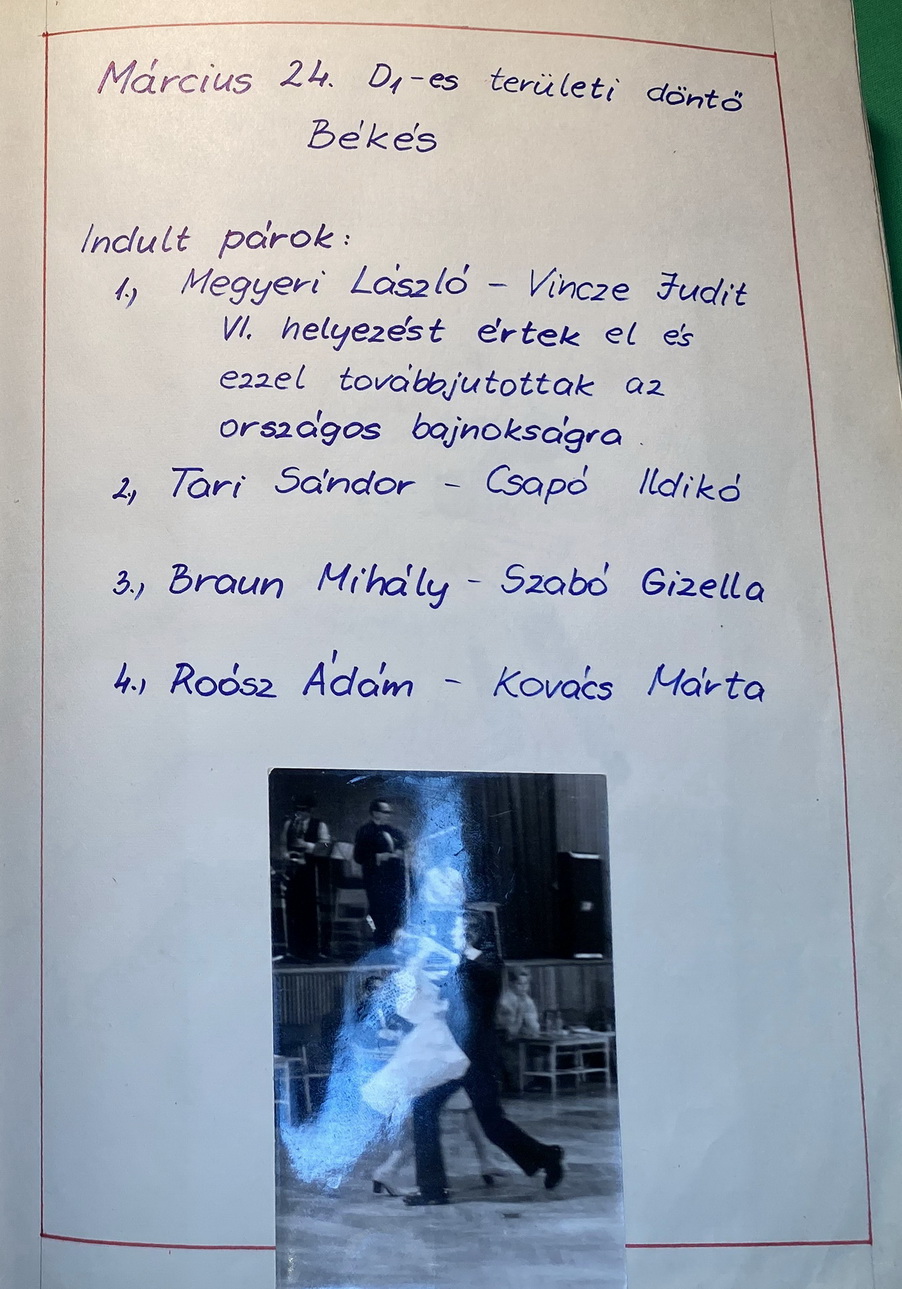 Március 24. D1-es területi döntő
Békés
Indult párok:
1., Megyeri László - Vincze Judit
VI. helyezést értek el és
ezzel továbbjutottak az
országos bajnokságra.
2., Tari Sándor - Csapó Ildikó
3., Braun Mihály - Szabó Gizella
4., Roósz Ádám - Kovács Márta